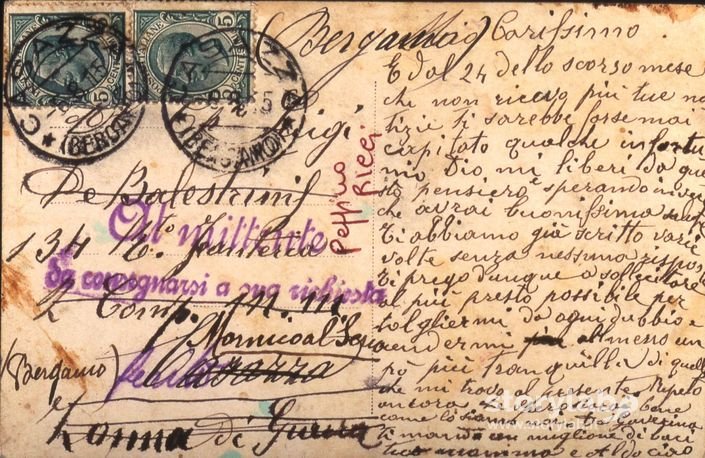 (Bergamo) Carissimo
E dal 24 dello scorso mese
che non ricevo più tue no
tizie ti sarebbe fosse mai
capitato qualche infortu
nio Dio mi liberi da que
sto pensiero e sperando invece
che avrai buonissima
Ti abbiamo già scritto varie
volte senza nessuna risposta
Ti prego dunque a sollecitare
al più presto possibile per
togliermi da ogni dubbio e
rendermi almesso un
pò più tranquilla di quello
che mi trovo al presente Ripeto
ancora bene
come lo siamo noi
ti manda un miglione di baci
mamma e Aldo ciao
Luigi
De Balestrini
134 Fanteria
2 Comp. m. m
(Bergamo)
e
Zonna di Guerra
Al mittente
da consegnarsi a sua richiesta
Peppino
Ricci
(BERGAMO)
(BERGAMO)
storylab